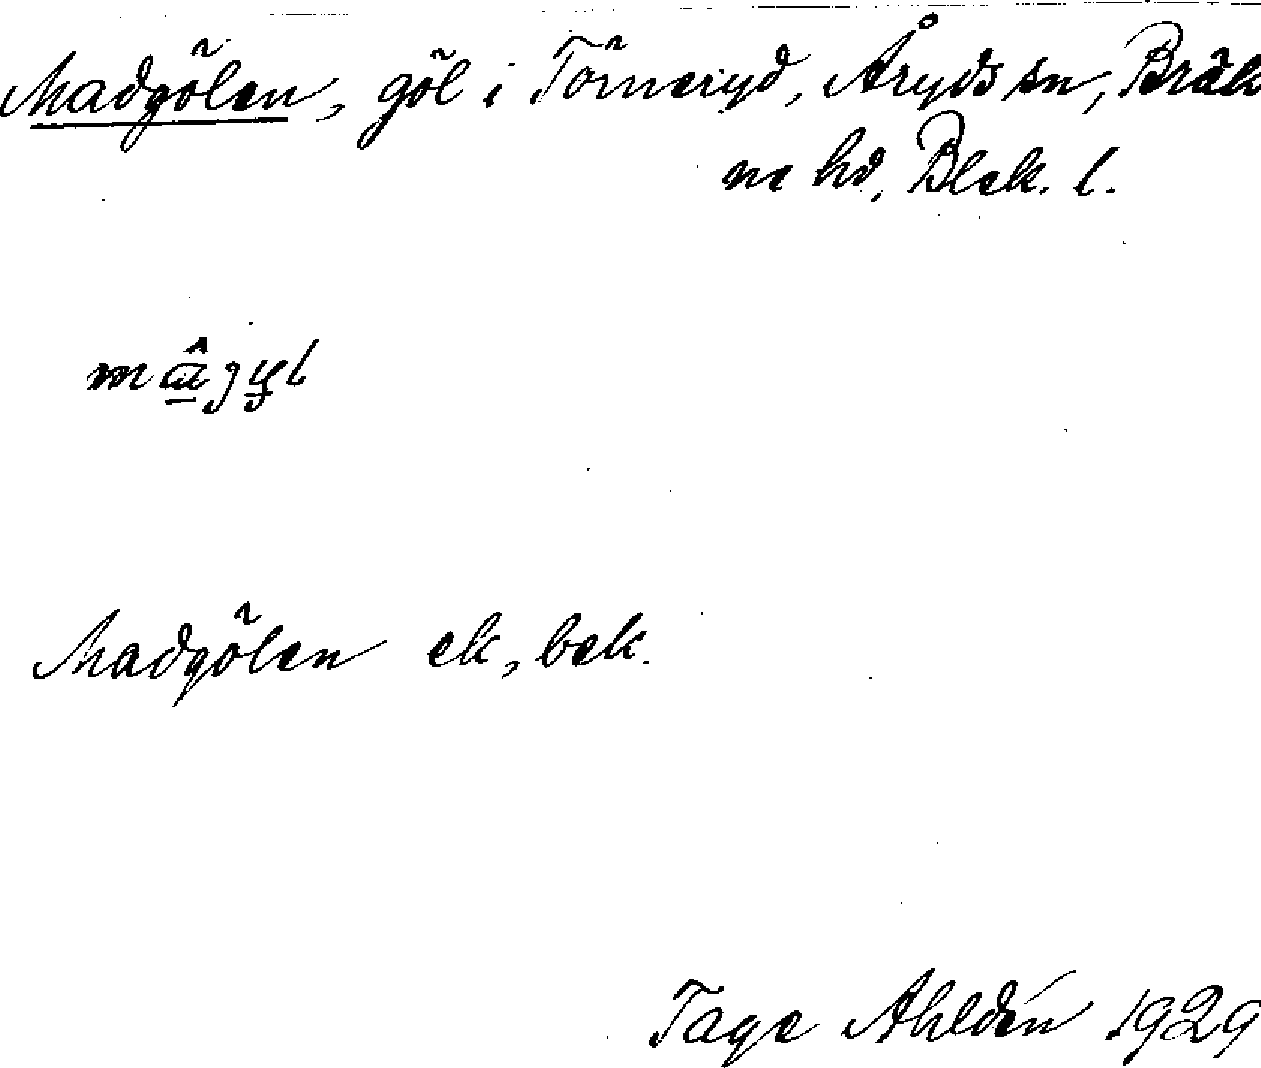 Madgölen, göl i Törneryd, Åryds sn, Bräk
ne hd, Blek. l.
Madgölen ek, bek.
Tage Ahldén 1929